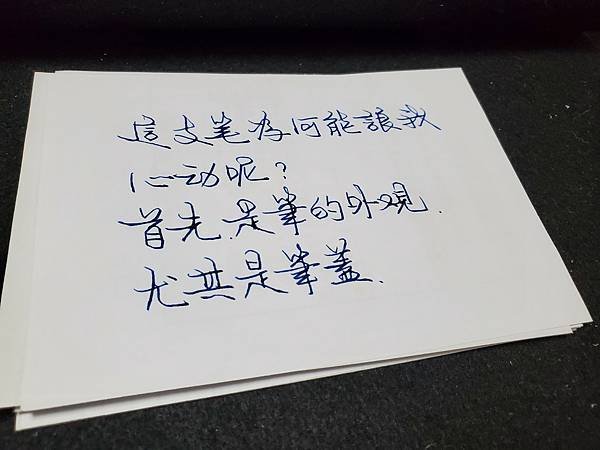 這支笔为何能讓我
心动呢?
首先.是筆的外観.
尤其是筆蓋.